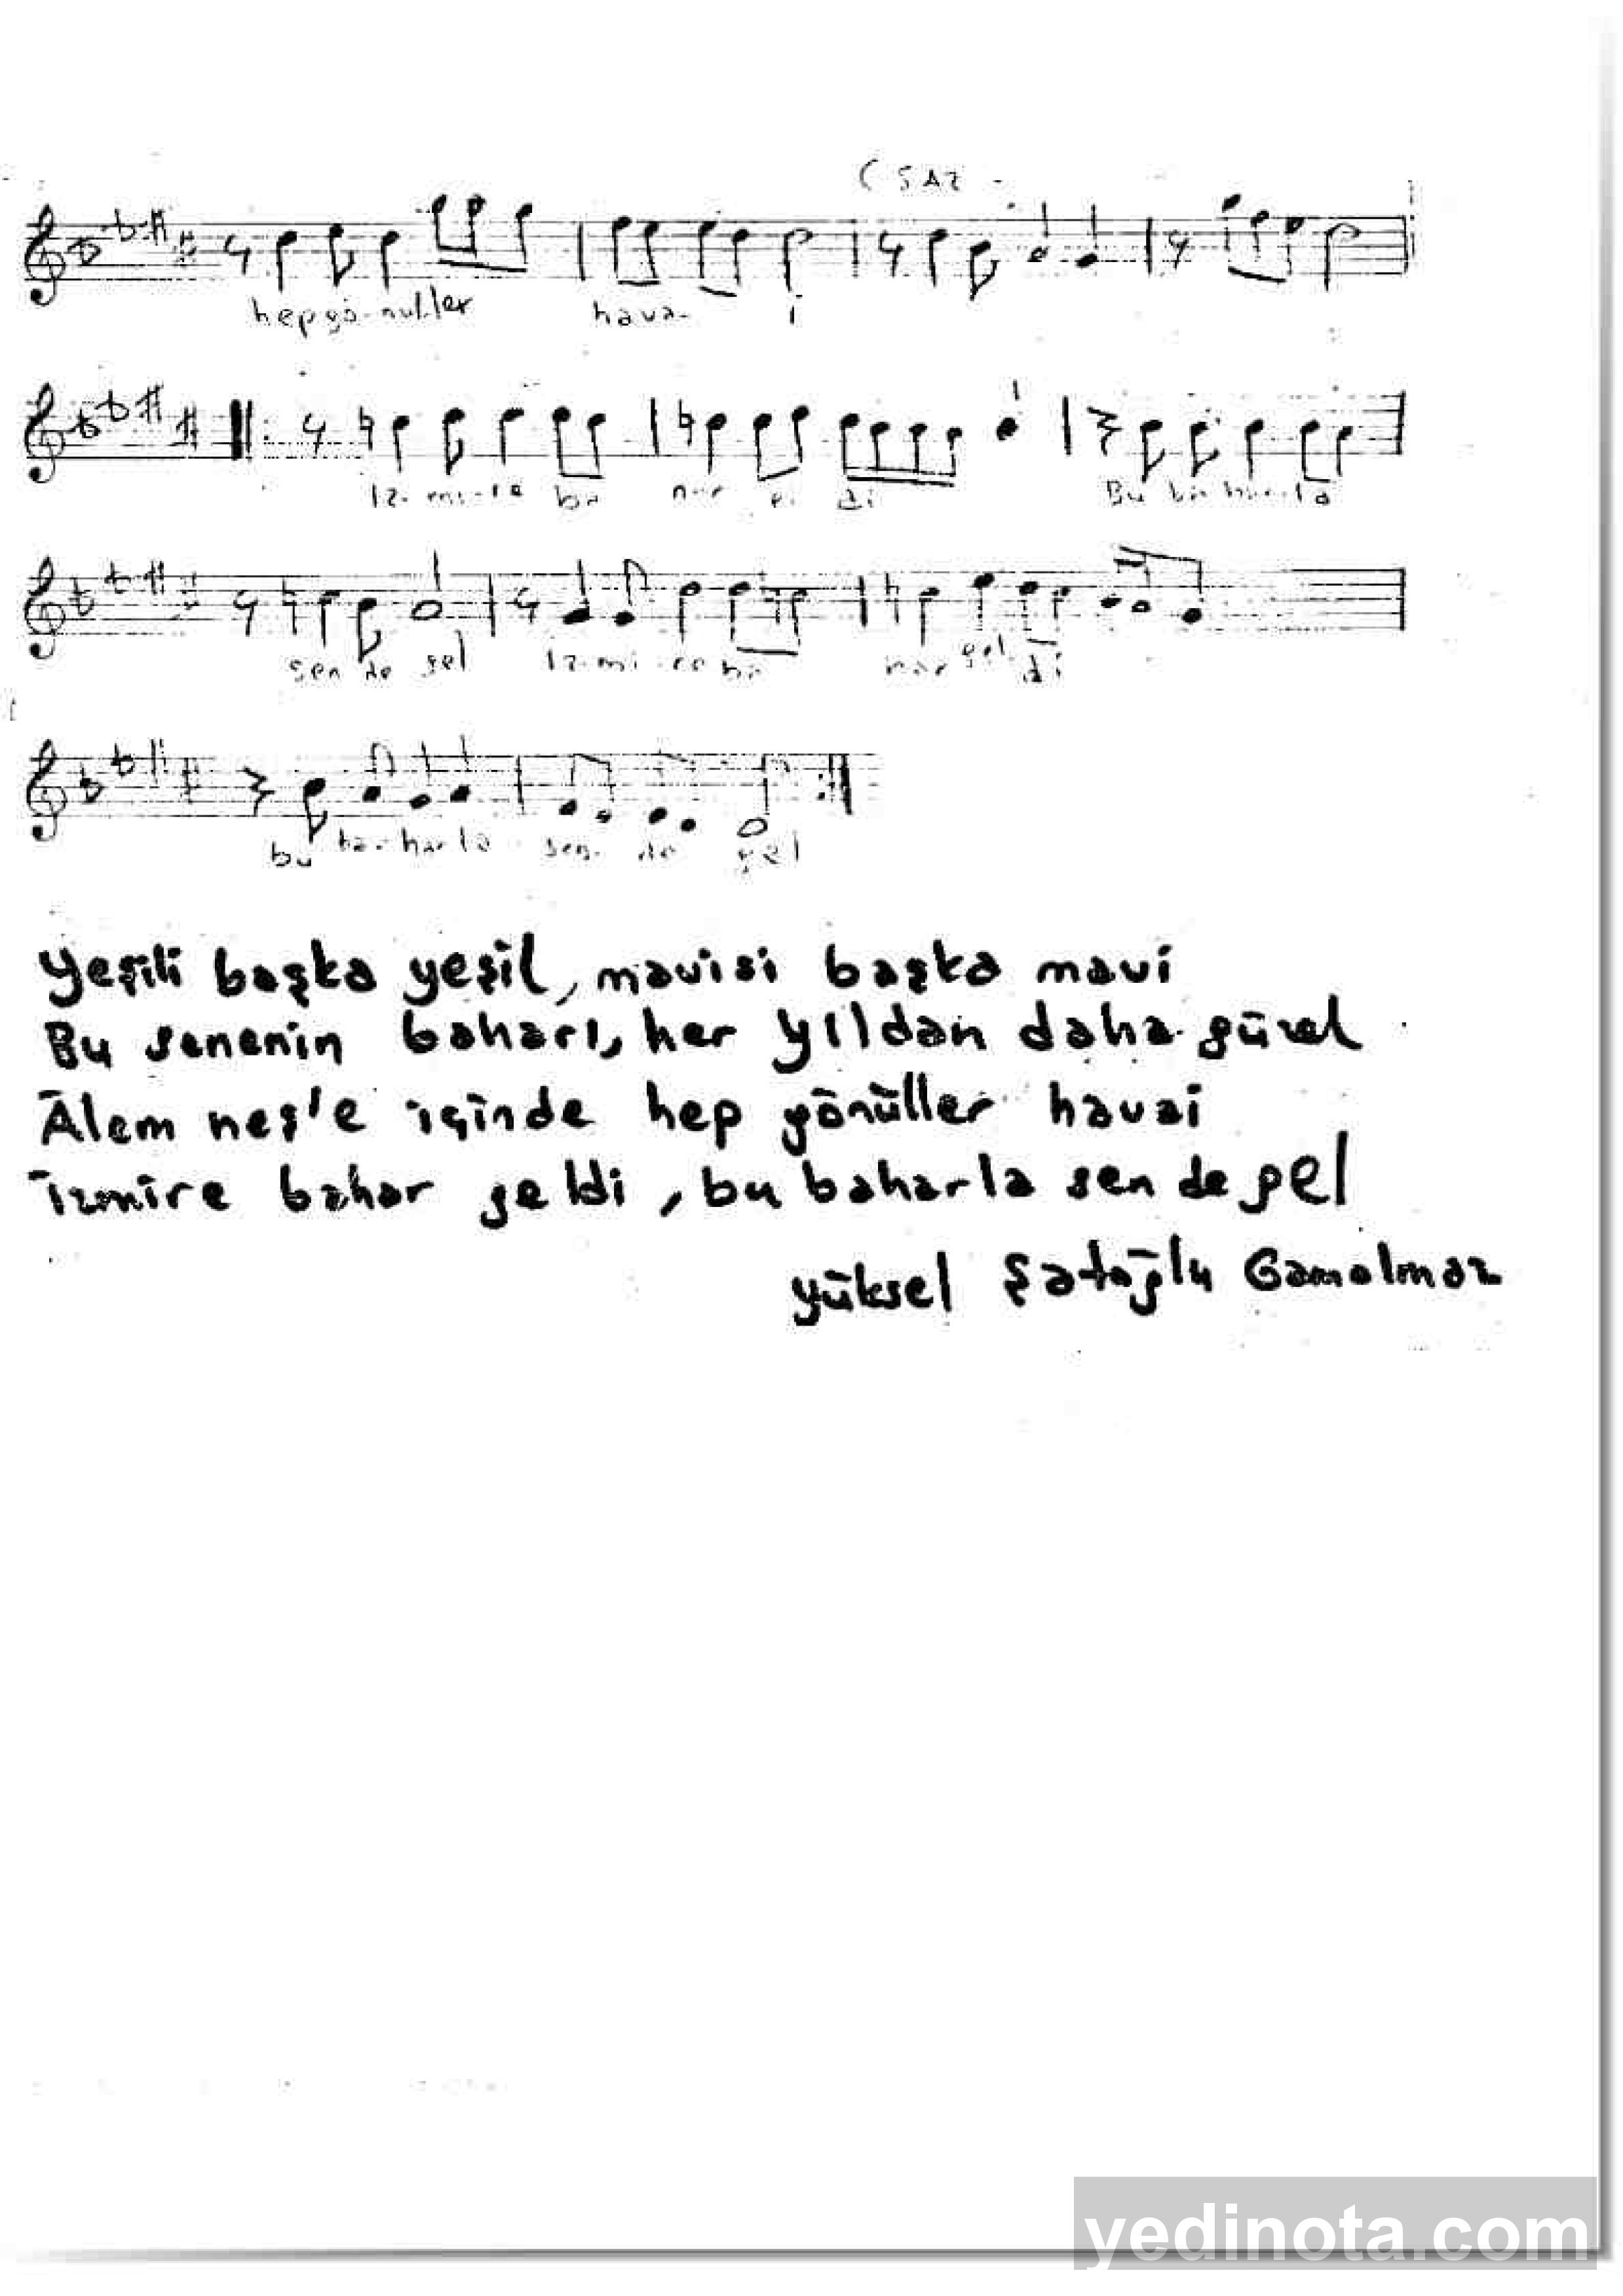 ( SAZ -
hep gö-nül-ler hava- i
İz-mi-re ba har el di Bu ba har-la
sen de gel İz-mi-re ba har gel di
bu ba-har la sen- de gel
Yeşili başka yeşil, mavisi başka mavi
Bu senenin baharı, her yıldan daha güzel
Âlem neş'e içinde hep gönüller havai
İzmire bahar geldi, bu baharla sen de gel
Yüksel Şatoğlu Gamolmaz
yedinota.com